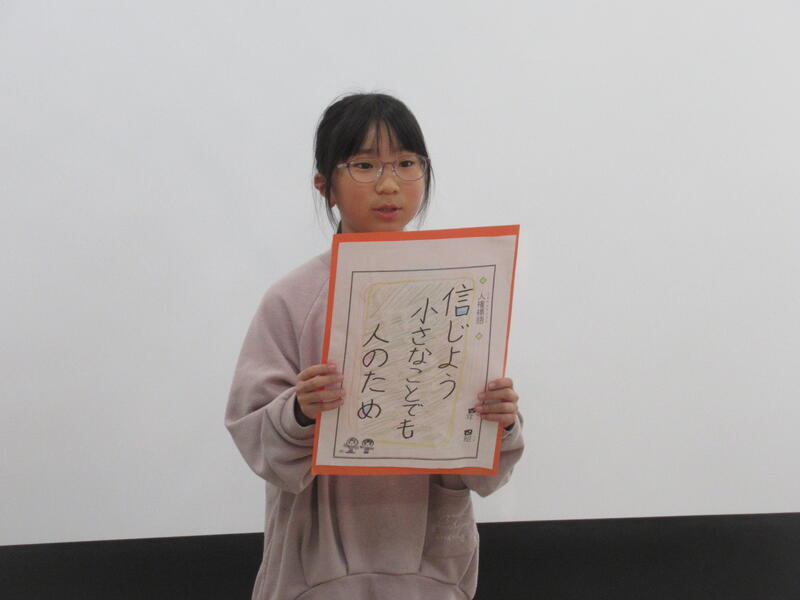 人権標語
信じよう
小さなことでも
人のため
四年 四組